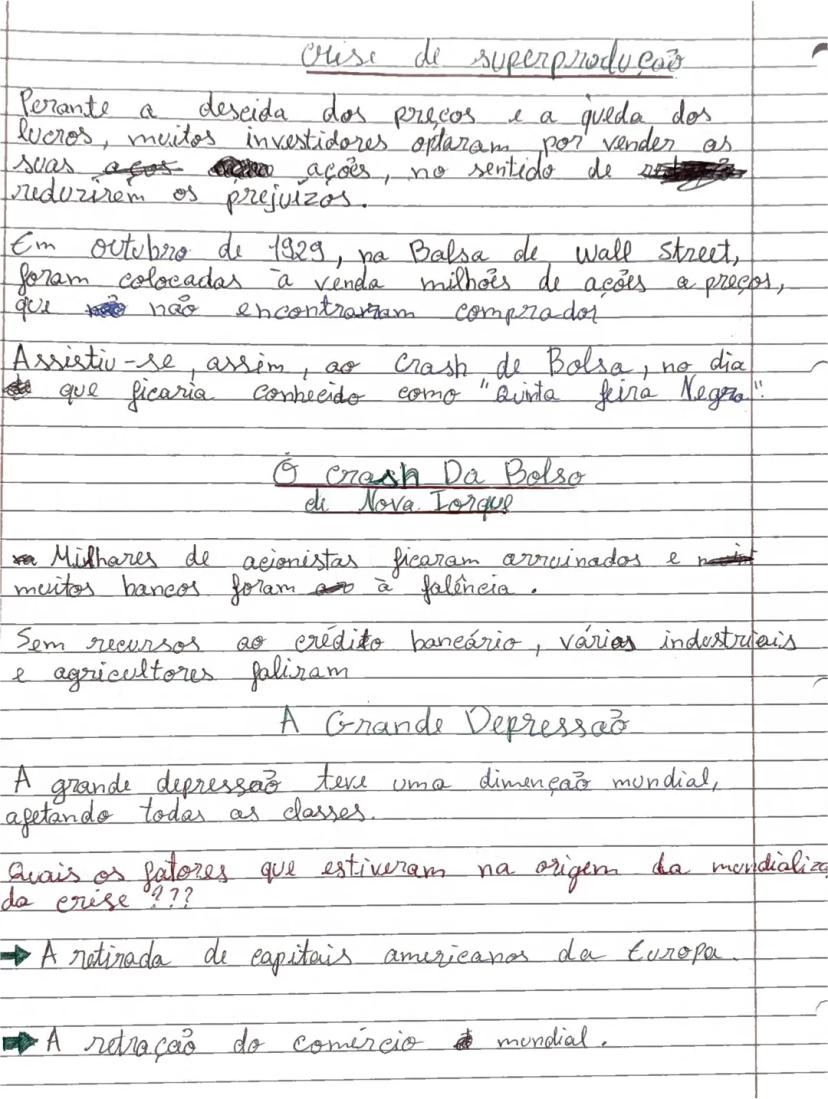 Crise de superprodução
Perante a descida dos preços e a queda dos
lucros, muitos investidores optaram por vender as
suas ações, no sentido de
reduzirem os prejuízos.
Em outubro de 1929, na Balsa de Wall Street,
foram colocadas à venda milhões de ações a preços,
que não encontraram comprador
Assistiu-se, assim, ao Crash de Bolsa, no dia
que ficaria conhecido como "Quinta feira Negra".
O crash Da Bolsa
de Nova Iorque
Milhares de acionistas ficaram arruinados e
muitos bancos foram à falência.
Sem recursos ao crédito bancário, várias industriais
e agricultores faliram
A Grande Depressão
A grande depressão teve uma dimenção mundial,
afetando todas as classes.
Quais os fatores que estiveram na origem da
da crise???
→ A retirada de capitais americanos da Europa.
→ A retração do comércio mundial.